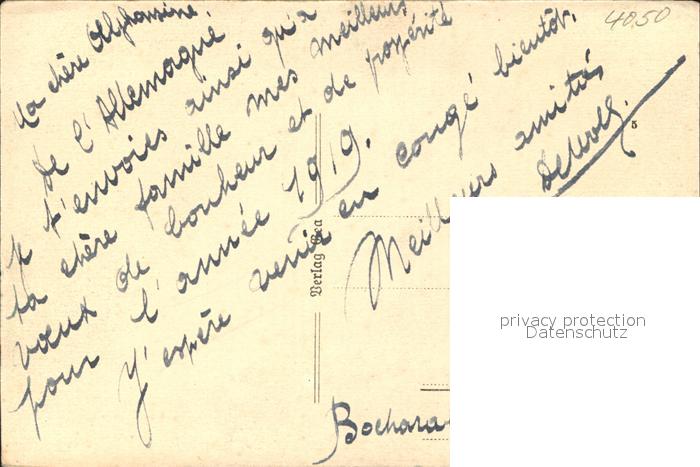 Ma chère Alphonsine.
De l'Allemagne
je t'envoies ainsi qu'a
ta chère famille mes meilleurs
vœux de bonheur et de prospérité
pour l'année 1919.
J'espère venir en congé bientôt.
Meilleures amitiés
4050
5
Verlag Gea
privacy protection
Datenschutz